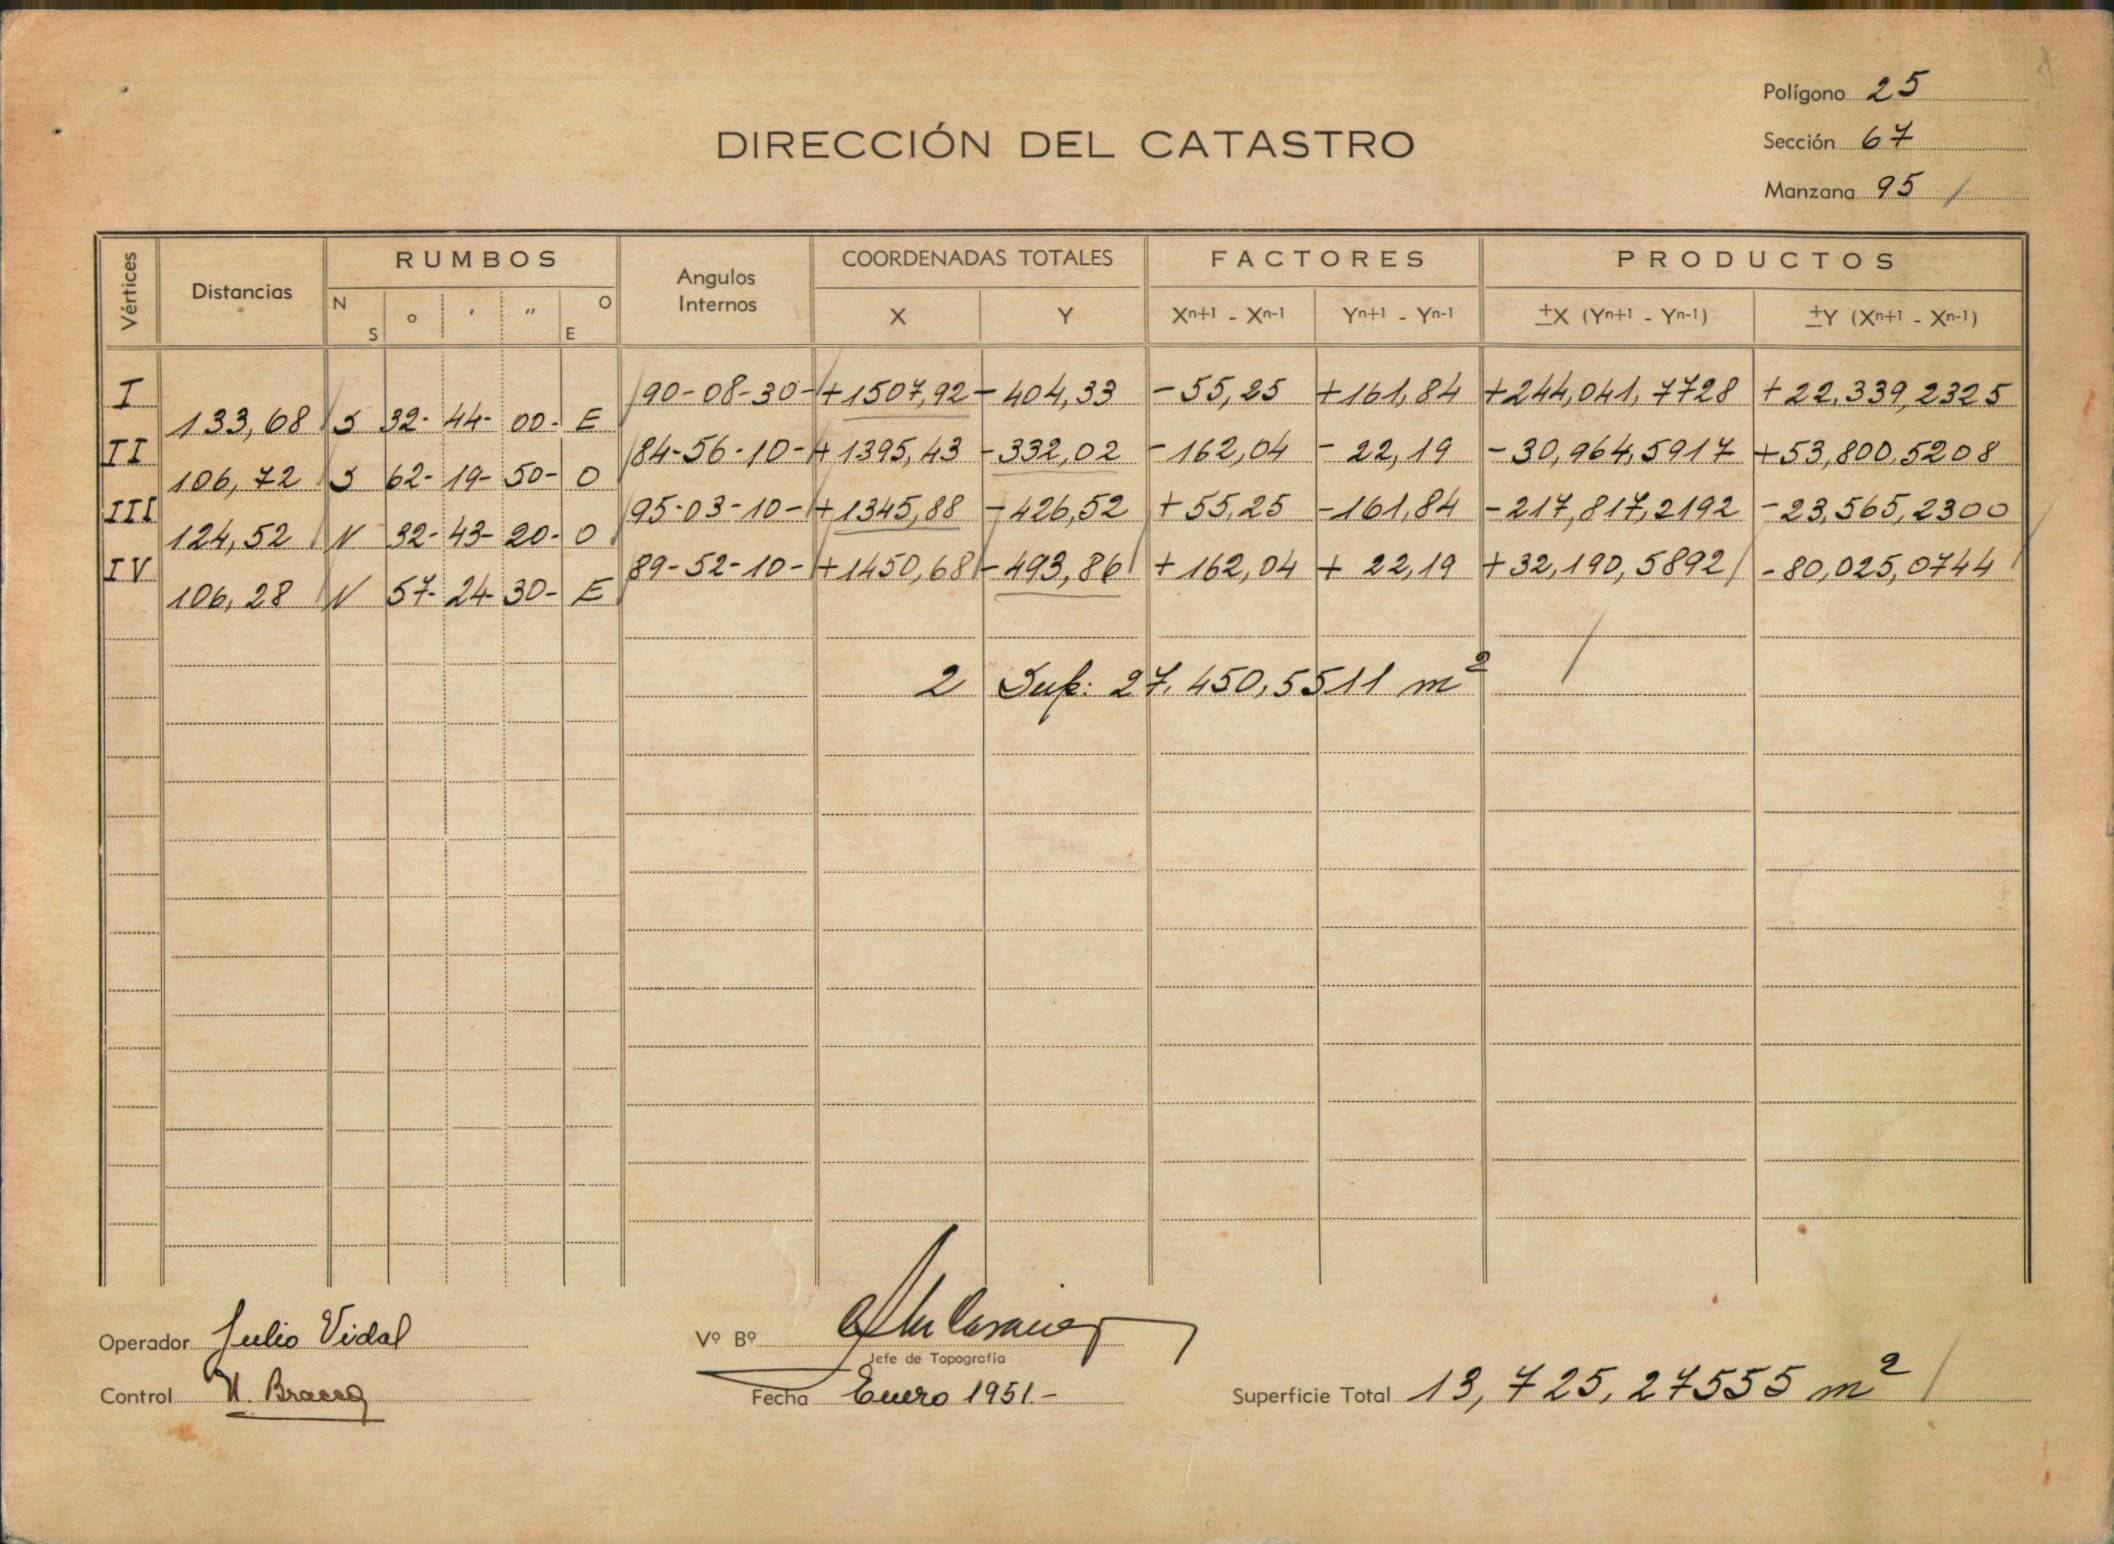 Polígono 25
DIRECCIÓN DEL CATASTRO
Sección 67
Manzana 95
Vértices Distancias RUMBOS Angulos Internos COORDENADAS TOTALES FACTORES PRODUCTOS
N S o ' " O E X Y Xn+1 - Xn-1 Yn+1 - Yn-1 ±X (Yn+1 - Yn-1) ±Y (Xn+1 - Xn-1)
I 90-08-30- +1507,92 -404,33 -55,25 +161,84 +244,041,7728 +22.339,2325
133,68 S 32- 44- 00- E
II 84-56-10- +1395,43 -332,02 -162,04 -22,19 -30,964,5917 +53,800,5208
106,72 S 62- 19- 50- O
III 95-03-10- +1345,88 -426,52 +55,25 -161,84 -217,817,2192 -23,565,2300
124,52 N 32- 43- 20- O
IV 89-52-10- +1450,68 -493,86 +162,04 +22,19 +32,190,5892 -80,025,0744
106,28 N 57- 24- 30- E
2 Sup: 27.450,5511 m²
Operador Julio Vidal
Vº Bº
Jefe de Topografía
Control
Fecha Enero 1951.-
Superficie Total 13,725,27555 m²